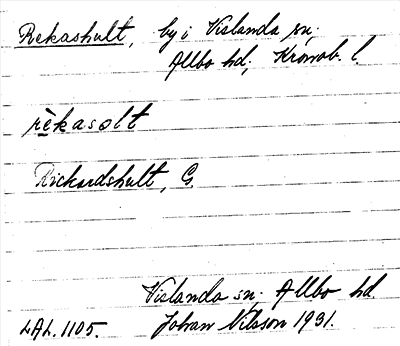 Rekashult, by i Vislanda sn,
Allbo hd, Kronob. l.
rèkasolt
Rickardshult, G
Vislanda sn, Allbo hd.
LAL. 1105. Johan Nilsson 1931.